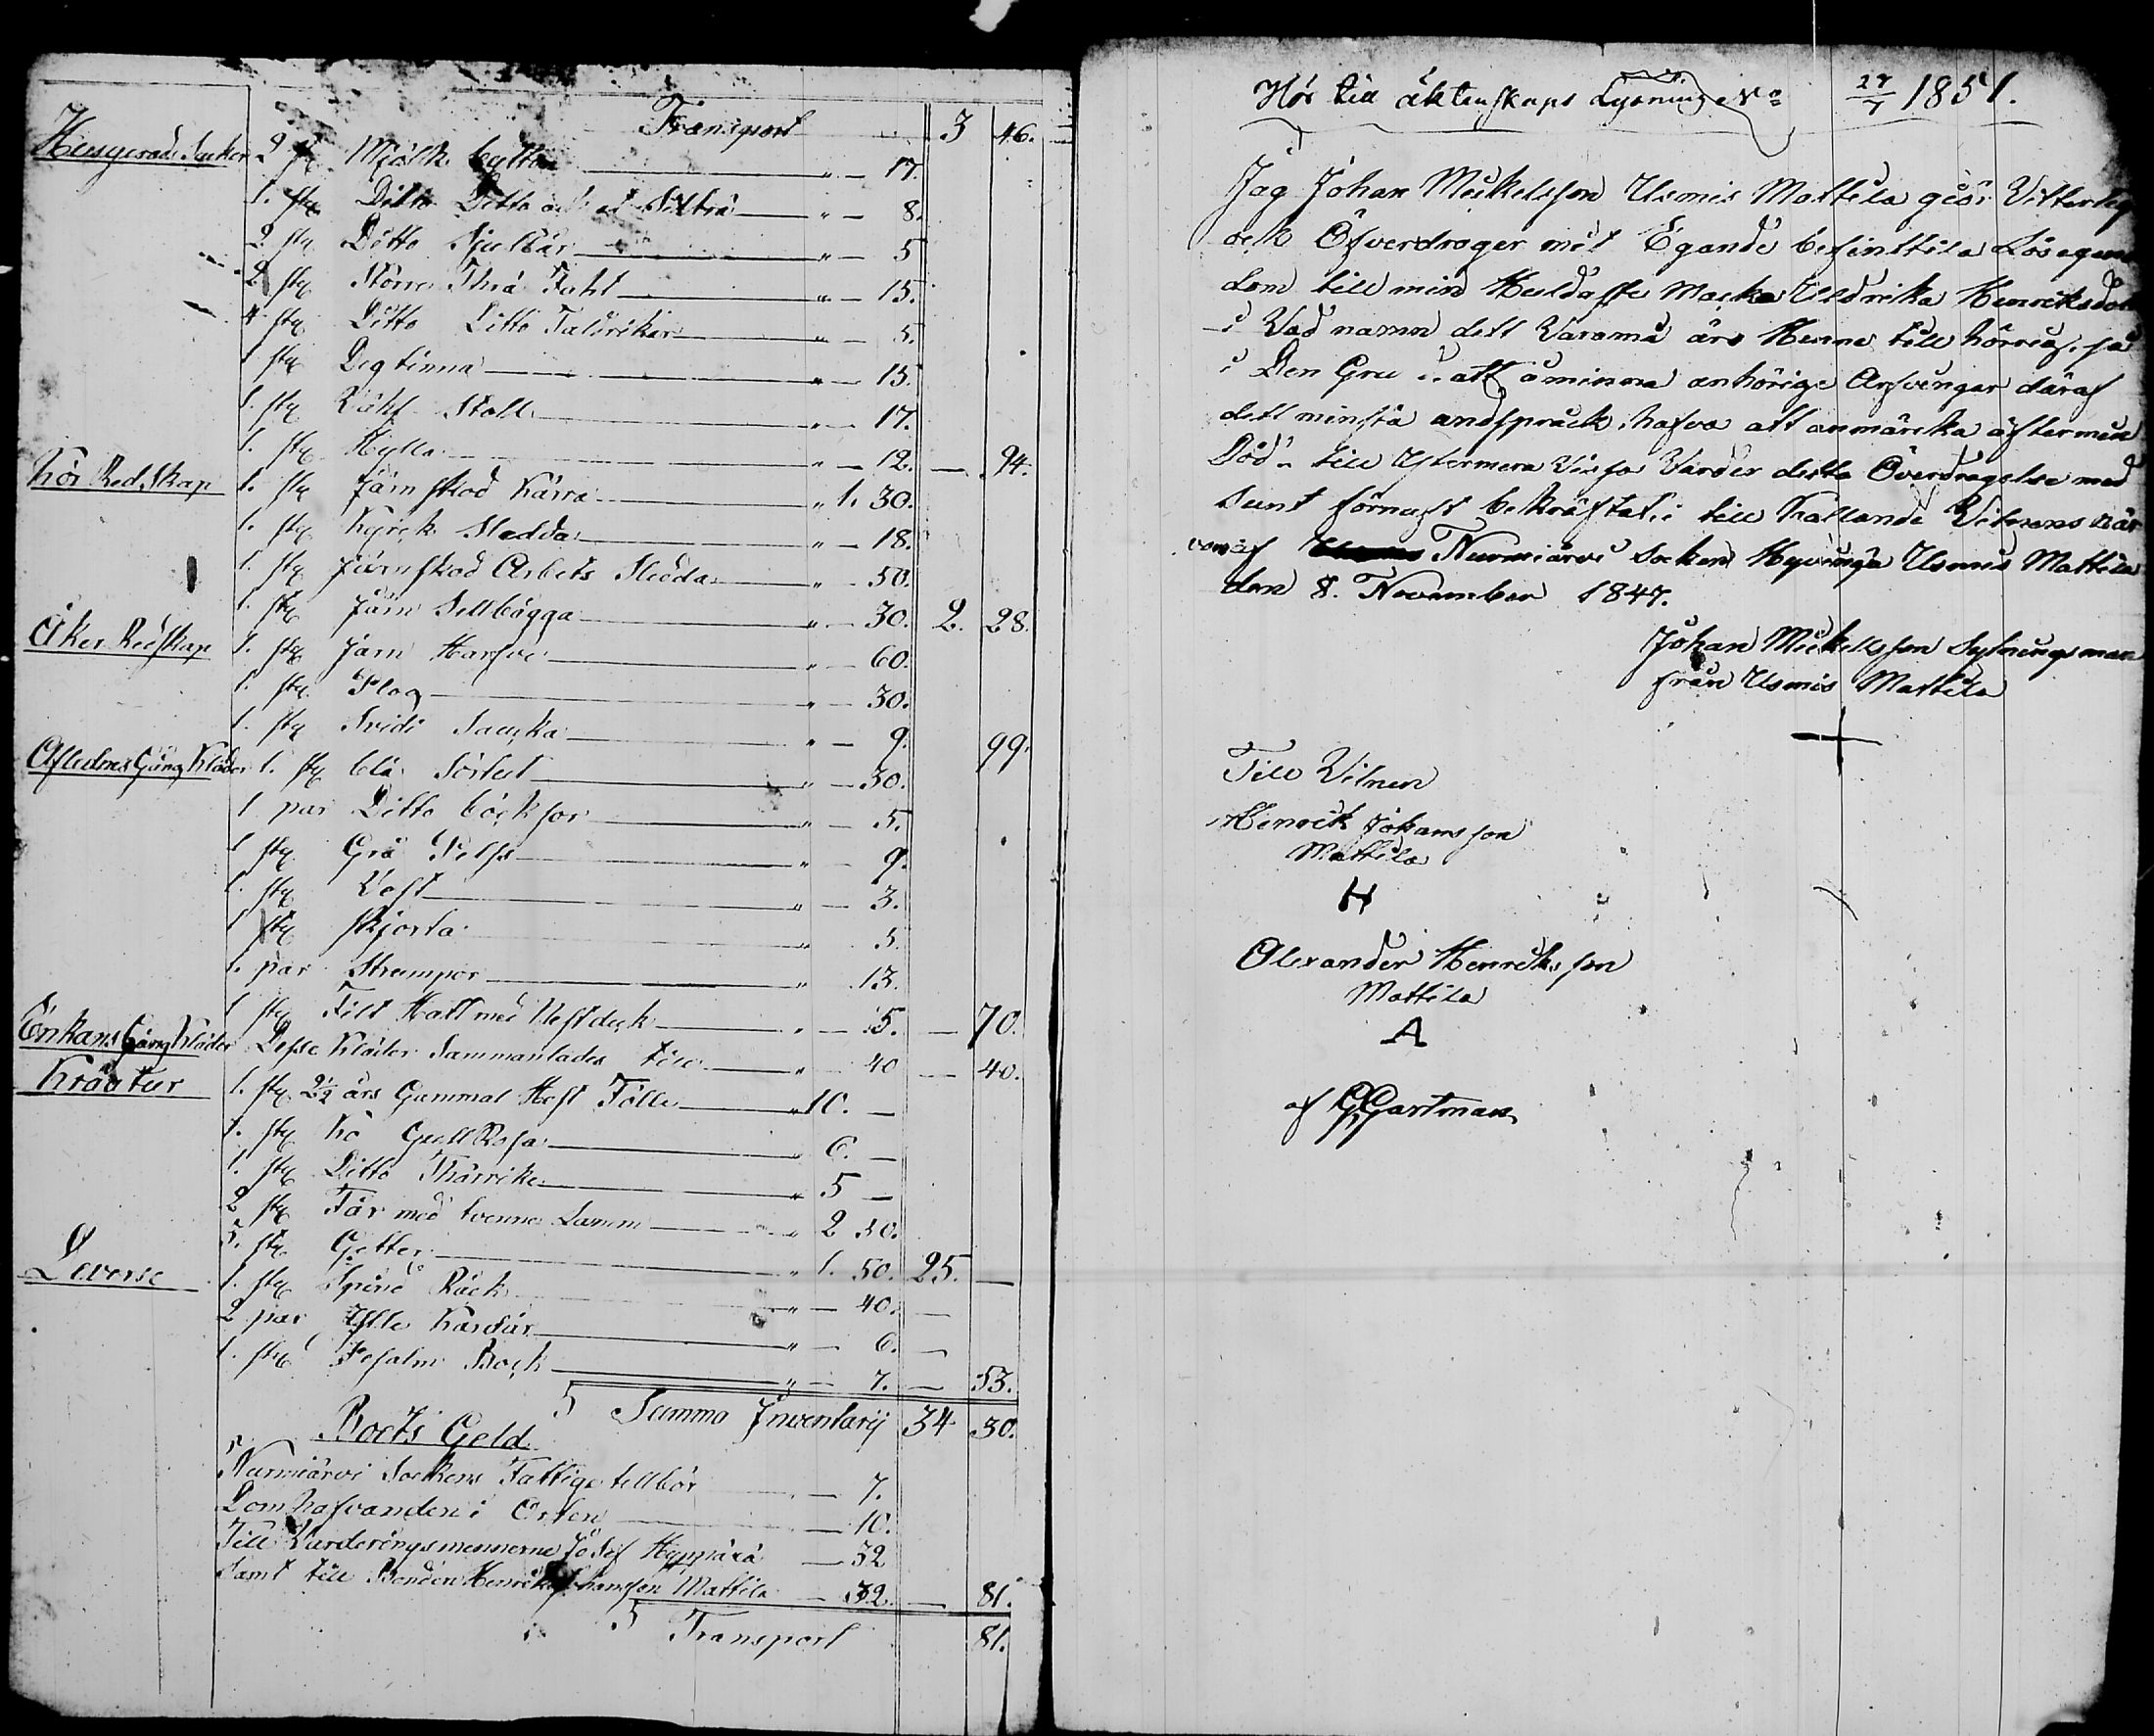 Transport 3 46.
Husgeråds Saker 2 st Mjölk bytton " — 17.
1. st Ditto Ditto " — 8.
2 st Ditto Sjulbär " — 5
2 st Större Thrä Faht " — 15.
4 st Ditto Ditto Taldrikar " — 5.
1 st Degtinna " — 15.
1. st Wäkf Stoll " — 17.
1. st Hylla " — 12. — 94.
Kör Redskap 1. st Järnskod Kärra " 1. 30.
1. st Kyrck Sledda " — 18.
1. st Järnskod Arbets Sledda " — 50.
1. st Järn Sellbågga " — 30. 2. 28.
Åker Redskap 1. st Järn Harfve " — 60.
1. st Plog " — 30.
1. st Svidi " — 9. 99.
Aflednes Gång Kläder 1. st blå Sörtut " — 30.
1 par Ditto böcksor " — 5.
1 st Grå Pelss " — 9.
1. st Vest " — 3.
1 st skjorta " 5.
1. par Strumpor " 13.
1 st Filt Hatt med " — 5. — 70.
Enkans Gång Kläder Desse Kläder Sammanlades till " 40 — 40.
Kräatur 1. st 2½ års Gammal Hest Fölle " 10. —
1. st Ko GullRosa " 6. —
1. st Ditto Thärrike " 5 —
2 st Får med tvenne Lamm " 2 50.
5. st Getter " 1. 50. 25. —
Deverse 1. st Spinn Råck " — 40. —
2 par Ylle Kardår " — 6. —
1. st Psalm Bock " — 7. — 53.
Summa Inventarij 34 30.
Boets Geld
Nurmiärvi Sockens Fattige tillbör — 7.
Domhafvanden i Orten — 10.
Till Värderingsmennerne Josef Hyppärä — 32
Samt till Bonden Henrik Johansson Mattila — 32. — 81.
Transport 81.
Hör till äktenskaps Lysning No 27/7 1851.
Jag Johan Mickelsson Usmis Mattila giör Vitterlig
ock Öfverdrager mit Egande befinttila Lösegen
dom till min Huldaste Macka Uldrika Henriksdot
i Vad namn dett Varama ära Henne till hörrig, så
i Den Gru att åminna anhörige Arfvingar däraf
dett minsta andspråck hafva att anmärcka äftermin
Död till yttermera Visso Varder detta Överdragelse med
sunt förnuft bekräftat, i till Kallande Vitnens när
varo af Nurmiärvi Socken Hyvinga Usmis Mattila
den 8. November 1847.
Johan Mickelsson Sytningsman
från Usmis Mattila
Till Vitnen
Henrik Johansson
Mattila
H
Alexander Henriksson
Mattila
A
af G Gartman